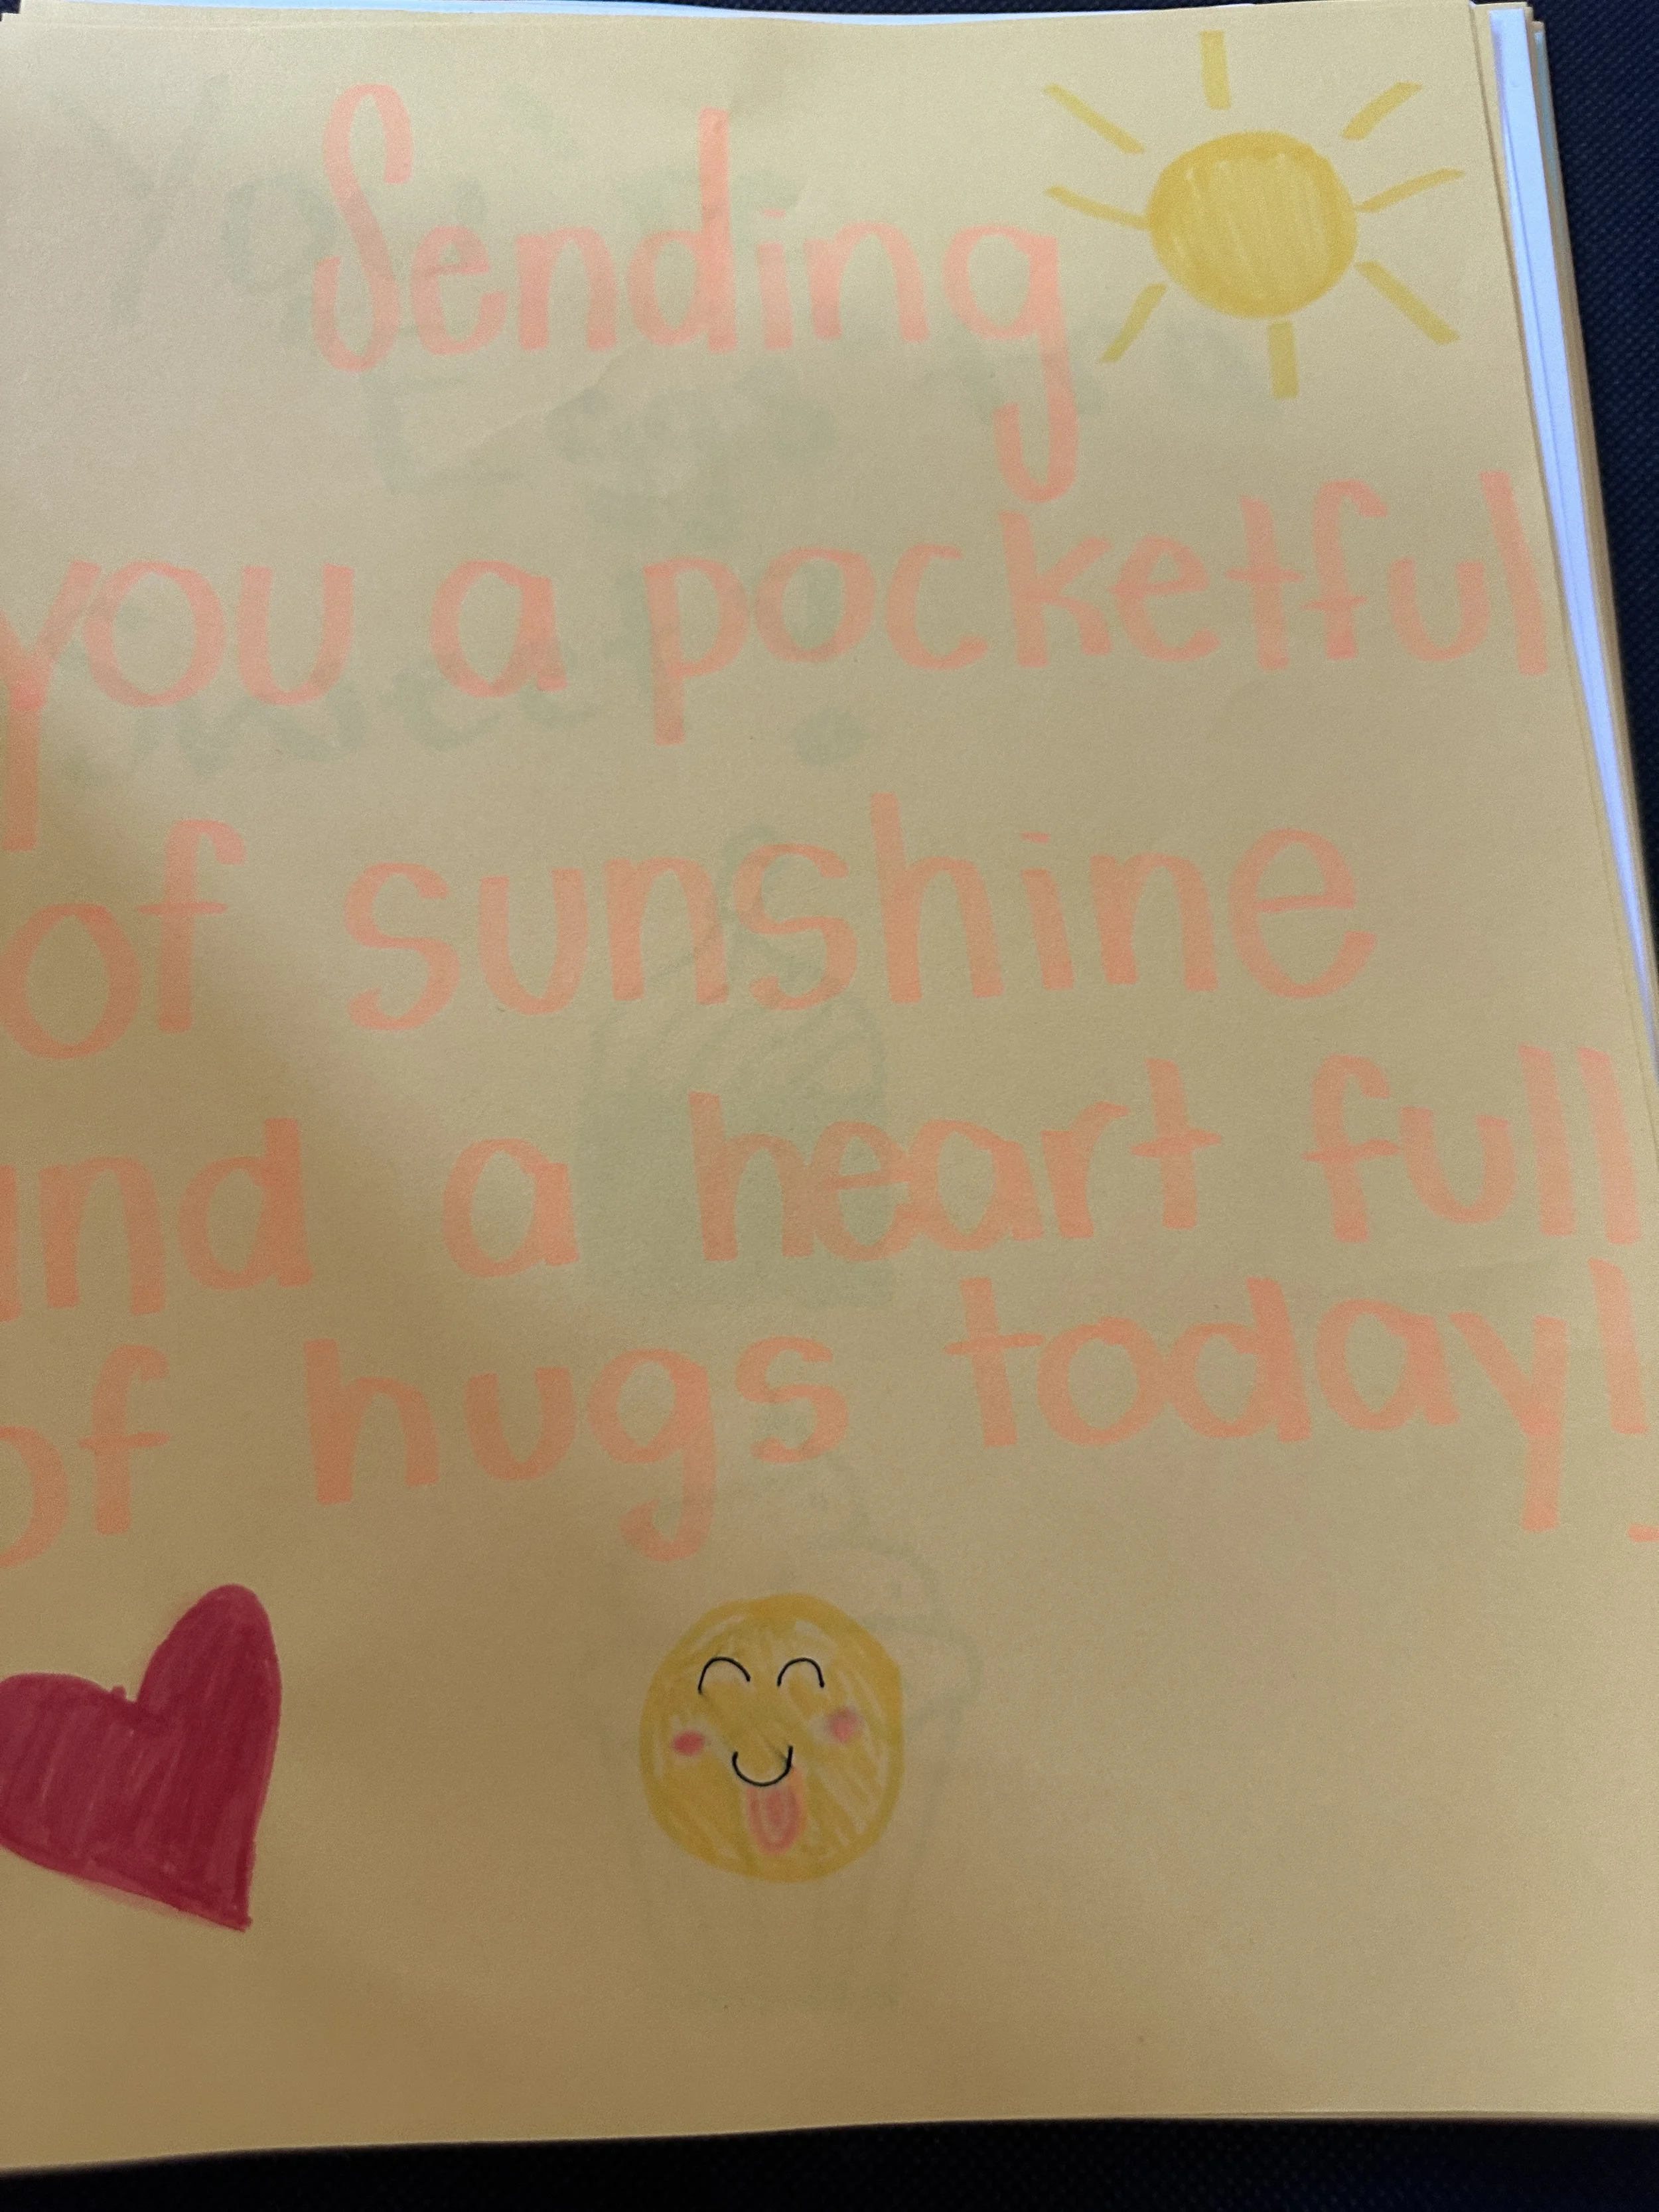 Sending
you a pocketful
of sunshine
and a heart full
of hugs today!